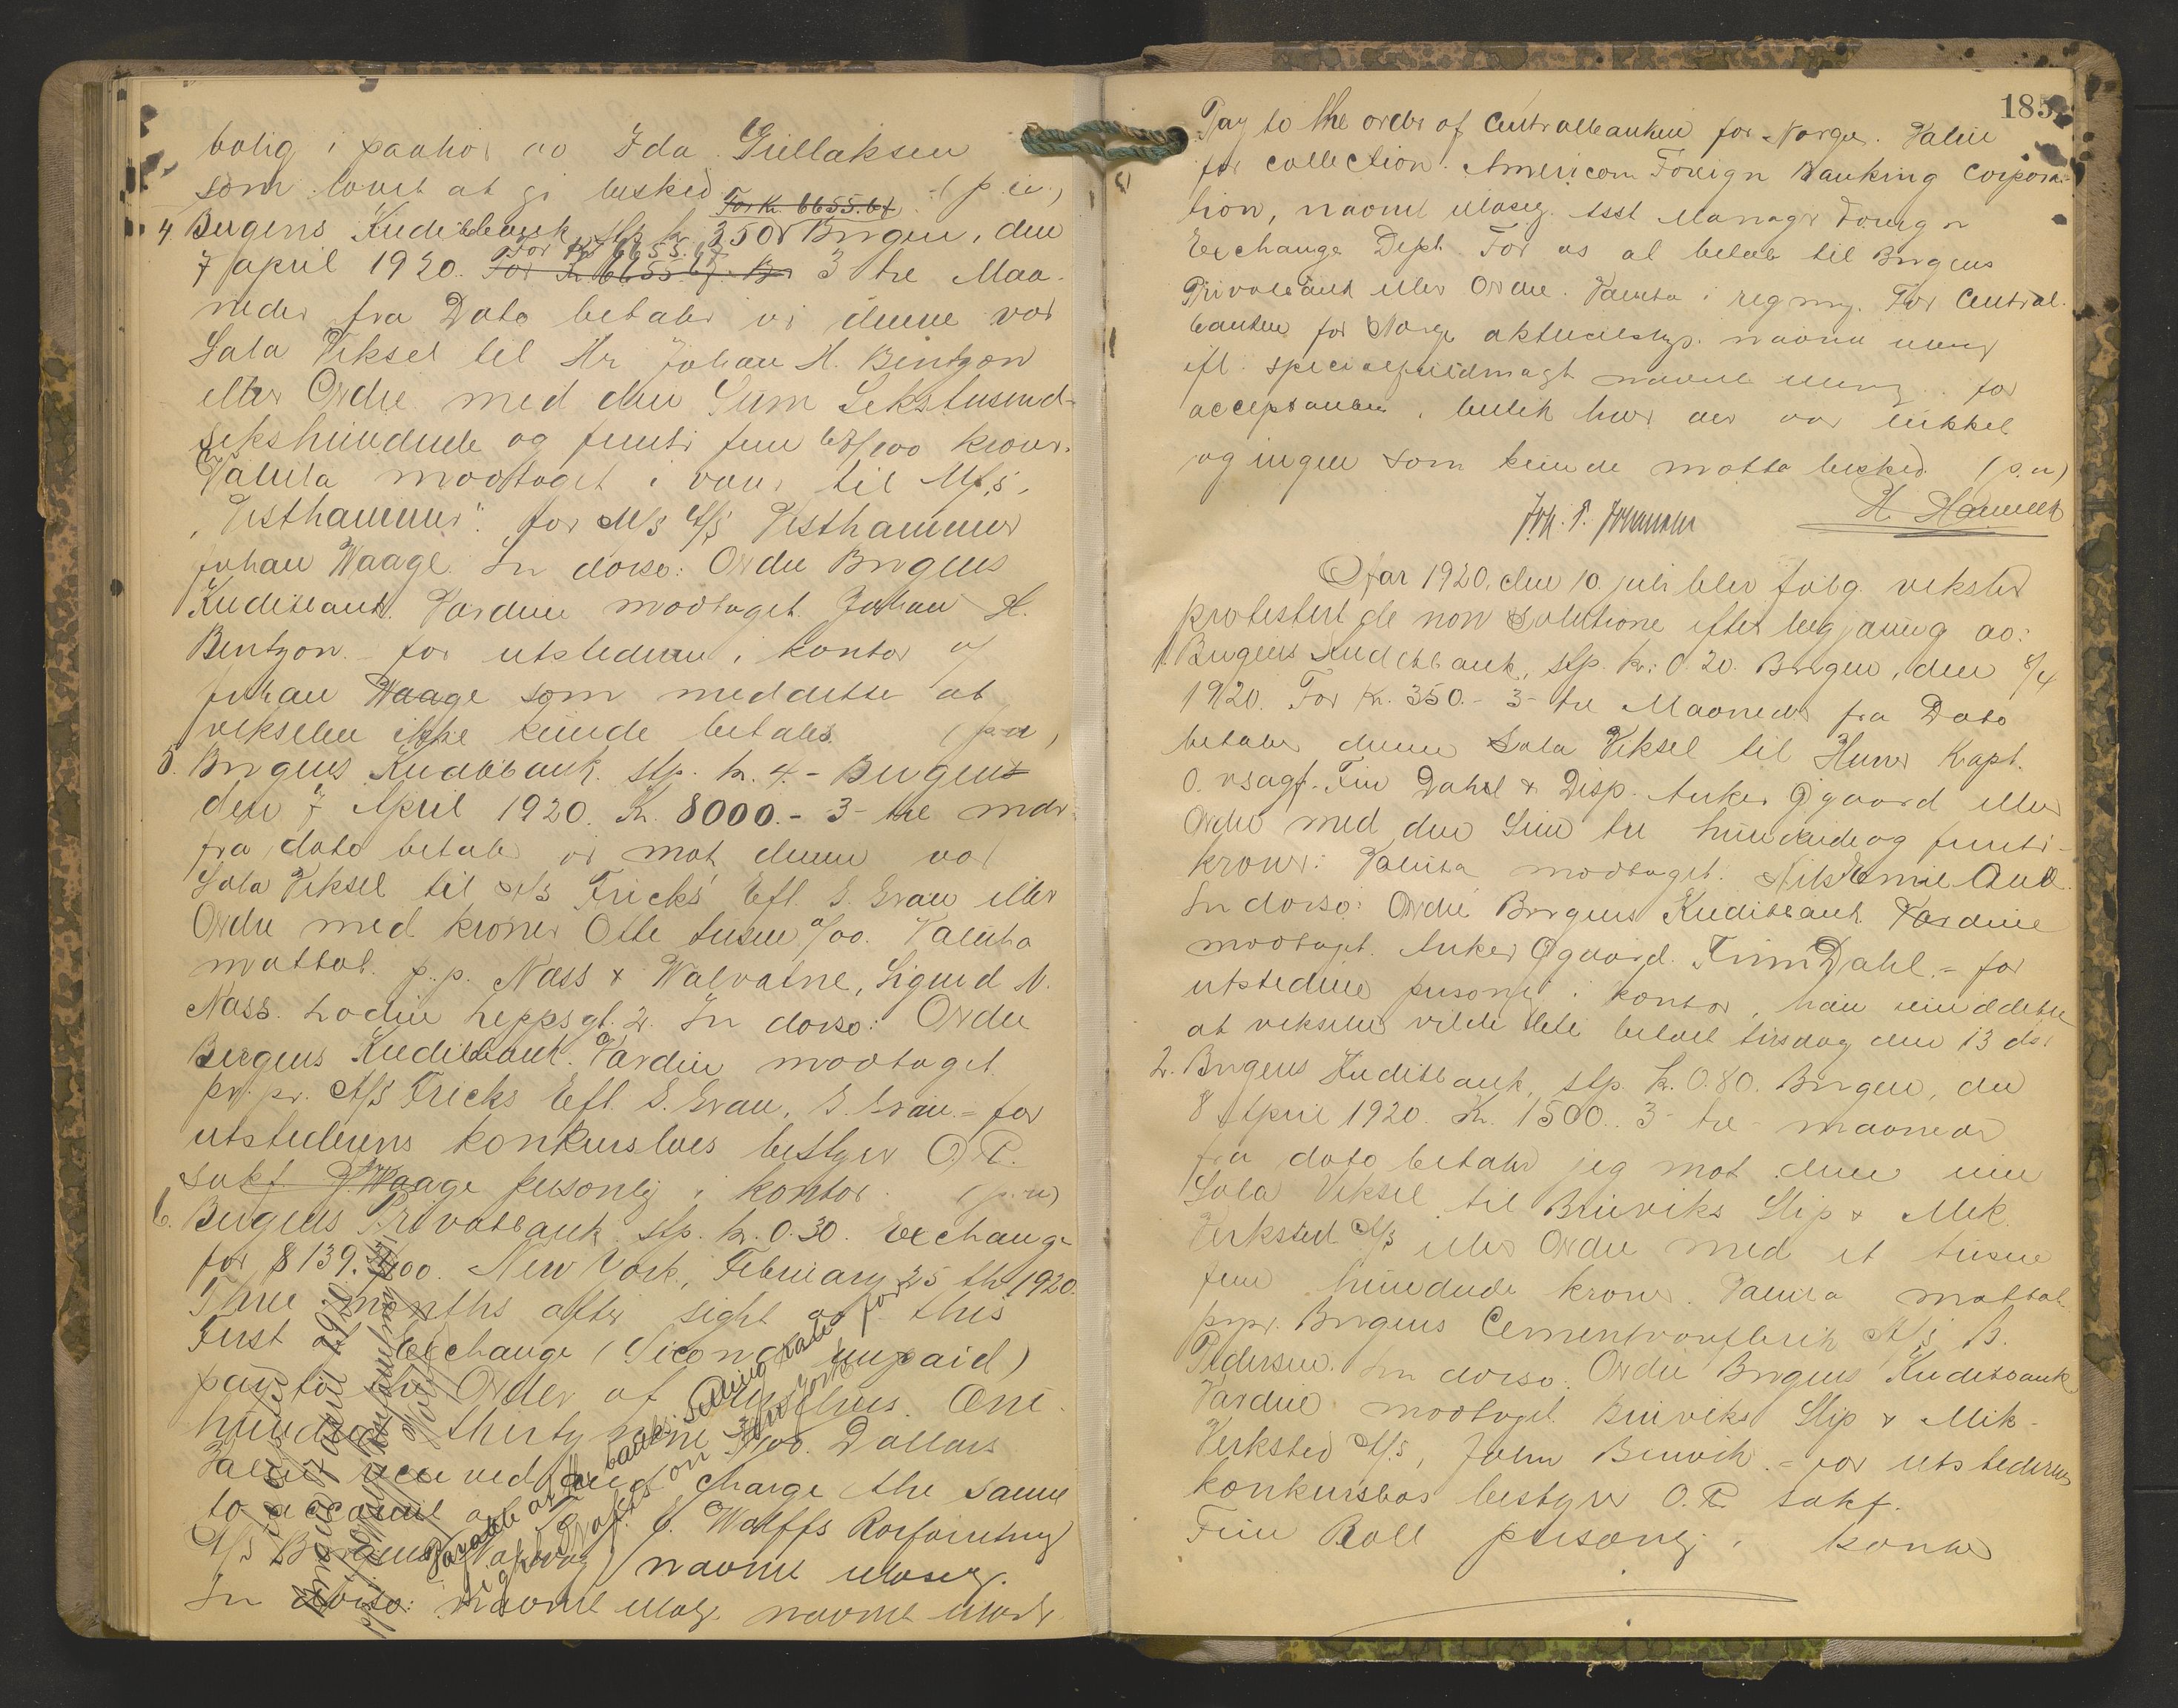 bolig i paahør av Ida Gullaksen
som lovet at gi besked. (p.u.)
For Kr. 6655.67
4. Bergens Kreditbank stp. kr. 3.50 Bergen, den
For kr 6655.67
7 april 1920. For Kr 6655.67. Br 3 tre Maa-
neder fra Dato betaler vi denne vor
Sola Veksel til Hr Johan H. Bentzon
eller Ordre med den Sum Sekstusend-
sekshundrede og femti fem 67/100 kroner.
Valuta modtaget i varer til M/S,
"Vesthammer". for M/S A/S Vesthammer
Johan Waage. In dorso: Ordre Bergens
Kreditbank. Værdien modtaget. Johan H.
Bentzon. - for utstederen i kontor av
Johan Waage som meddelte at
vekselen ikke kunde betales. (p.u.)
5. Bergens Kreditbank. stp. kr. 4.- Bergens
den 7 April 1920. Kr. 8000.- 3- tre mdr.
fra dato betaler vi mot denne vor
Sola Veksel til A/S Fricks Eft. S. Grau eller
Ordre med kroner Otte tusen 0/00. Valuta
mottat. p.p. Næss & Walvatne, Sigurd N.
Næss. Lodin Leppsgt. 2. In dorso: Ordre
Bergens Kreditbank. Værdien modtaget.
pr. pr. A/S Fricks Eft. S. Grau, S. Grau. - for
utstederens konkursbos bestyrer O.R.
sakf. J. Waage personlig i kontor. (p.u.)
6. Bergens Privatbank stp. kr. 0.30. Exchange
for $139. /100. New York, February 25 th 1920.
Three months after sight of this
First of Exchange (Second unpaid)
pay to the Order of Ourselves. One
hundred thirty nine /100. Dollars
Value received and charge the same
to account of To J. Wolffs Rosforretning
A/S Bergens (Norway) navnet ulæselig.
In dorso: navnet ulæs. navnet ulæs.
Payable at the banks selling rate for
sight Drafts on New York
185.
Pay to the order of Centralbanken for Norge. Value
for collection. American Foreign Banking Corpora-
tion, navnet ulæselig. Asst Manager Foreign
Exchange Dept. For os al beløb til Bergens
Privatbank eller Ordre. Valuta i regning. For Central-
banken for Norge aktieselskap. navnet ulæs
ifl. specialfuldmagt navnet ulæs. for
acceptanten i butik hvor der var lukket
og ingen som kunde motta besked (p.u.)
H.
Joh. P. Johnsen
Aar 1920, den 10 juli blev følg. veksler
protestert de non solutione efter begjæring av:
1. Bergens Kreditbank, stp. kr. 0.20. Bergen, den 8/4
1920. For Kr. 350.- 3- tre Maaneder fra Dato
betaler denne Sola Veksel til Herrer Kapt.
O. rsagf. Finn Dahl & Disp. Anker Øgaard eller
Ordre med den Sum tre hundrede og femti-
kroner. Valuta modtaget. Nils Emil Aue.
In dorso: Ordre Bergens Kreditbank Værdien
modtaget. Anker Øgaard. Finn Dahl. - for
utstederen personlig i kontor, han meddelte
at vekselen vilde bli betalt tirsdag den 13 ds.
2. Bergens Kreditbank, stp. kr. 0.80. Bergen, den
8 April 1920. Kr. 1500.. 3- tre maaneder
fra dato betaler jeg mot denne min
Sola Veksel til Bruviks Slip & Mek.
Verksted A/S eller Ordre med et tusen
fem hundrede kroner. Valuta mottat.
pr.pr. Bergens Cementvarefabrik A/S B.
Pedersen. In dorso: Ordre Bergens Kreditbank
Værdien modtaget. Bruviks Slip & Mek-
Verksted A/S, John Bruvik. - for utstederens
konkursbos bestyrer O.R. sakf.
Finn Boll personlig i kontor